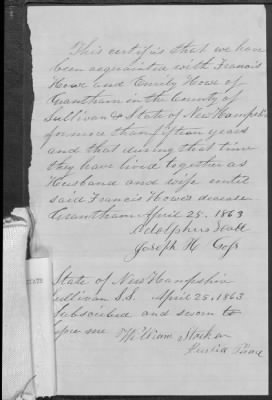 This certifies that we have
been acquainted with Francis
Howe and Emily Howe of
Grantham in the County of
Sullivan & State of New Hampshire
for more than fifteen years
and that during that time
they have lived together as
Husband and wife until
said Francis Howes decease
Grantham April 25. 1863
Adolphus Hall
Joseph H
State of New Hampshire
Sullivan S.S. April 25, 1863
Subscribed and sworn to
before me William
Justice Peace
STATE